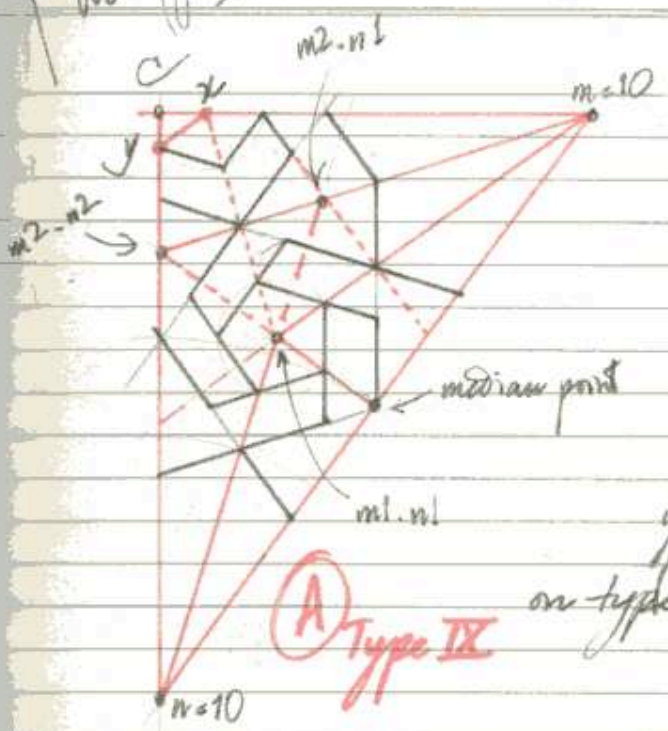 m2.n1
C
x
m=10
y
m2.n2
median point
m1.n1
A
Type IX
on type
n=10